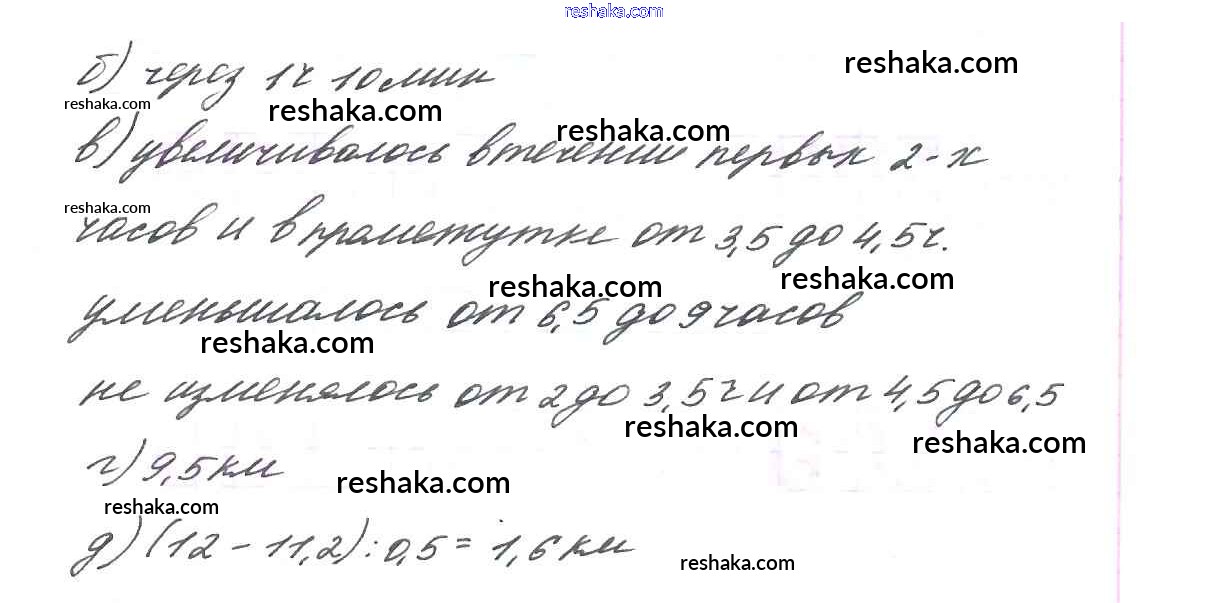 reshaka.com
б) через 1ч 10 мин
reshaka.com
reshaka.com
reshaka.com
reshaka.com
в) увеличивалось втечении первых 2-х
reshaka.com
часов и в промежутке от 3,5 до 4,5ч.
reshaka.com
reshaka.com
уменьшалось от 6,5 до 9 часов
reshaka.com
не изменялось от 2 до 3,5ч и от 4,5 до 6,5
reshaka.com
reshaka.com
г) 9,5 км
reshaka.com
reshaka.com
д) (12 - 11,2) : 0,5 = 1,6 км
reshaka.com